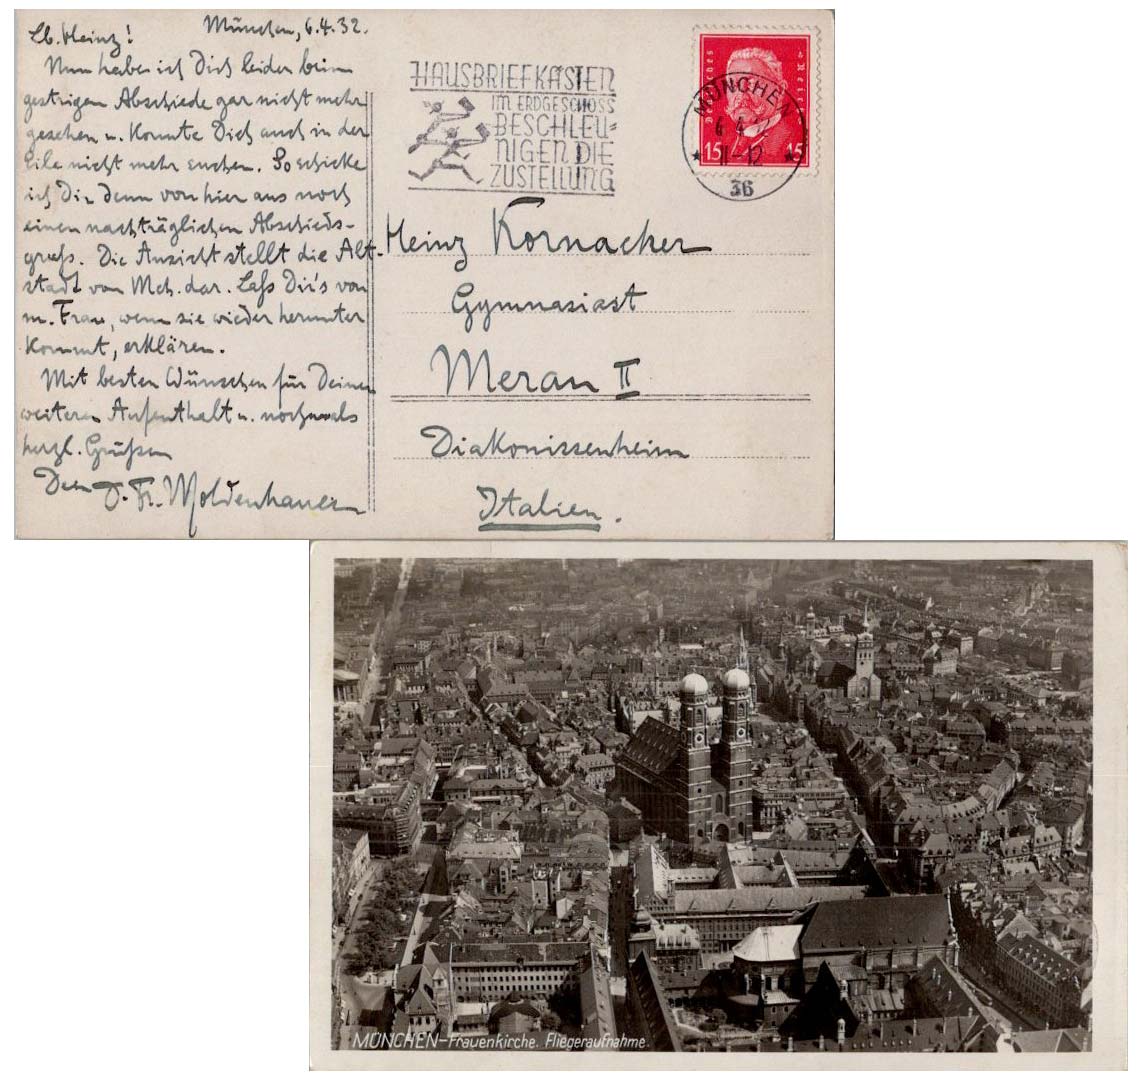 München, 6.4.32.
Lb. Heinz!
Nun habe ich Dich leider beim
gestrigen Abschiede gar nicht mehr
gesehen u. konnte Dich auch in der
Eile nicht mehr suchen. So schicke
ich Dir denn von hier aus noch
einen nachträglichen Abschieds-
gruß. Die Ansicht stellt die Alt-
stadt von Mch. dar. Laß Dir's von
m. Frau, wenn sie wieder herunter
kommt, erklären.
Mit besten Wünschen für Deinen
weiteren Aufenthalt u. nochmals
herzl. Grüßen
Dein D. Fr. Moldenhauer
HAUSBRIEFKÄSTEN
IM ERDGESCHOSS
BESCHLEU=
NIGEN DIE
ZUSTELLUNG
Deutsches Reich
15 15
MÜNCHEN
6.4.32
11-12
36
Heinz Kornacker
Gymnasiast
Meran II
Diakonissenheim
Italien.
MÜNCHEN-Frauenkirche. Fliegeraufnahme.